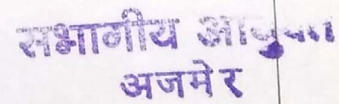 सभागीय आयुक्त
अजमेर